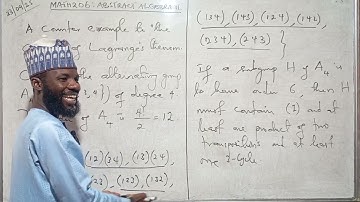 21/09/21
MAIN206: ABSTRACT ALGEBRA II
A Counter example to the
of Lagrange's Theorem
the alternating group
3, 4}) of degree 4
of A₄ is 4!/2 = 12.
(12)(34), (13)(24)
(123), (132),
(134), (143), (124), (142),
(234), (243) }
If a subgroup H of A₄ is
to have order 6, then H
must contain (1) and at
least one product of two
transpositions and at least
one 3-cycle